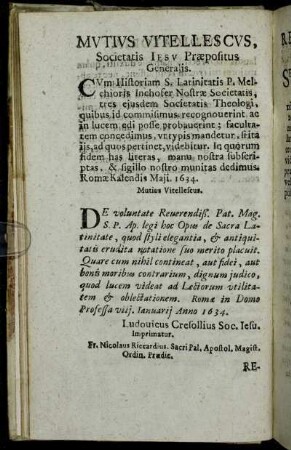 MVTIVS VITELLESCVS,
Societatis IESV Præpositus
Generalis.
CVm Historiam S. Latinitatis P. Mel-
chioris Inchofer Nostræ Societatis,
tres ejusdem Societatis Theologi,
quibus id commisimus recognoverint ac
in lucem edi posse probauerint; faculta-
tem concedimus, vt typis mandetur, si ita
ijs, ad quos pertinet, videbitur. In quorum
fidem has literas, manu nostra subscrip-
tas, & sigillo nostro munitas dedimus.
Romæ Kalendis Maji. 1634.
Mutius Vitellescus.
DE voluntate Reuerendiss. Pat. Mag.
S. P. Ap. legi hoc Opus de Sacra La-
tinitate, quod styli elegantia, & antiqui-
tatis erudita notatione suo merito placuit.
Quare cum nihil contineat, aut fidei, aut
bonis moribus contrarium, dignum judico,
quod lucem videat ad Lectorum utilita-
tem & oblectationem. Romæ in Domo
Professa viij. Ianuarij Anno 1634.
Ludouicus Cresollius Soc. Iesu.
Imprimatur.
Fr. Nicolaus Riccardius. Sacri Pal. Apostol. Magist.
Ordin. Prædic.
RE-